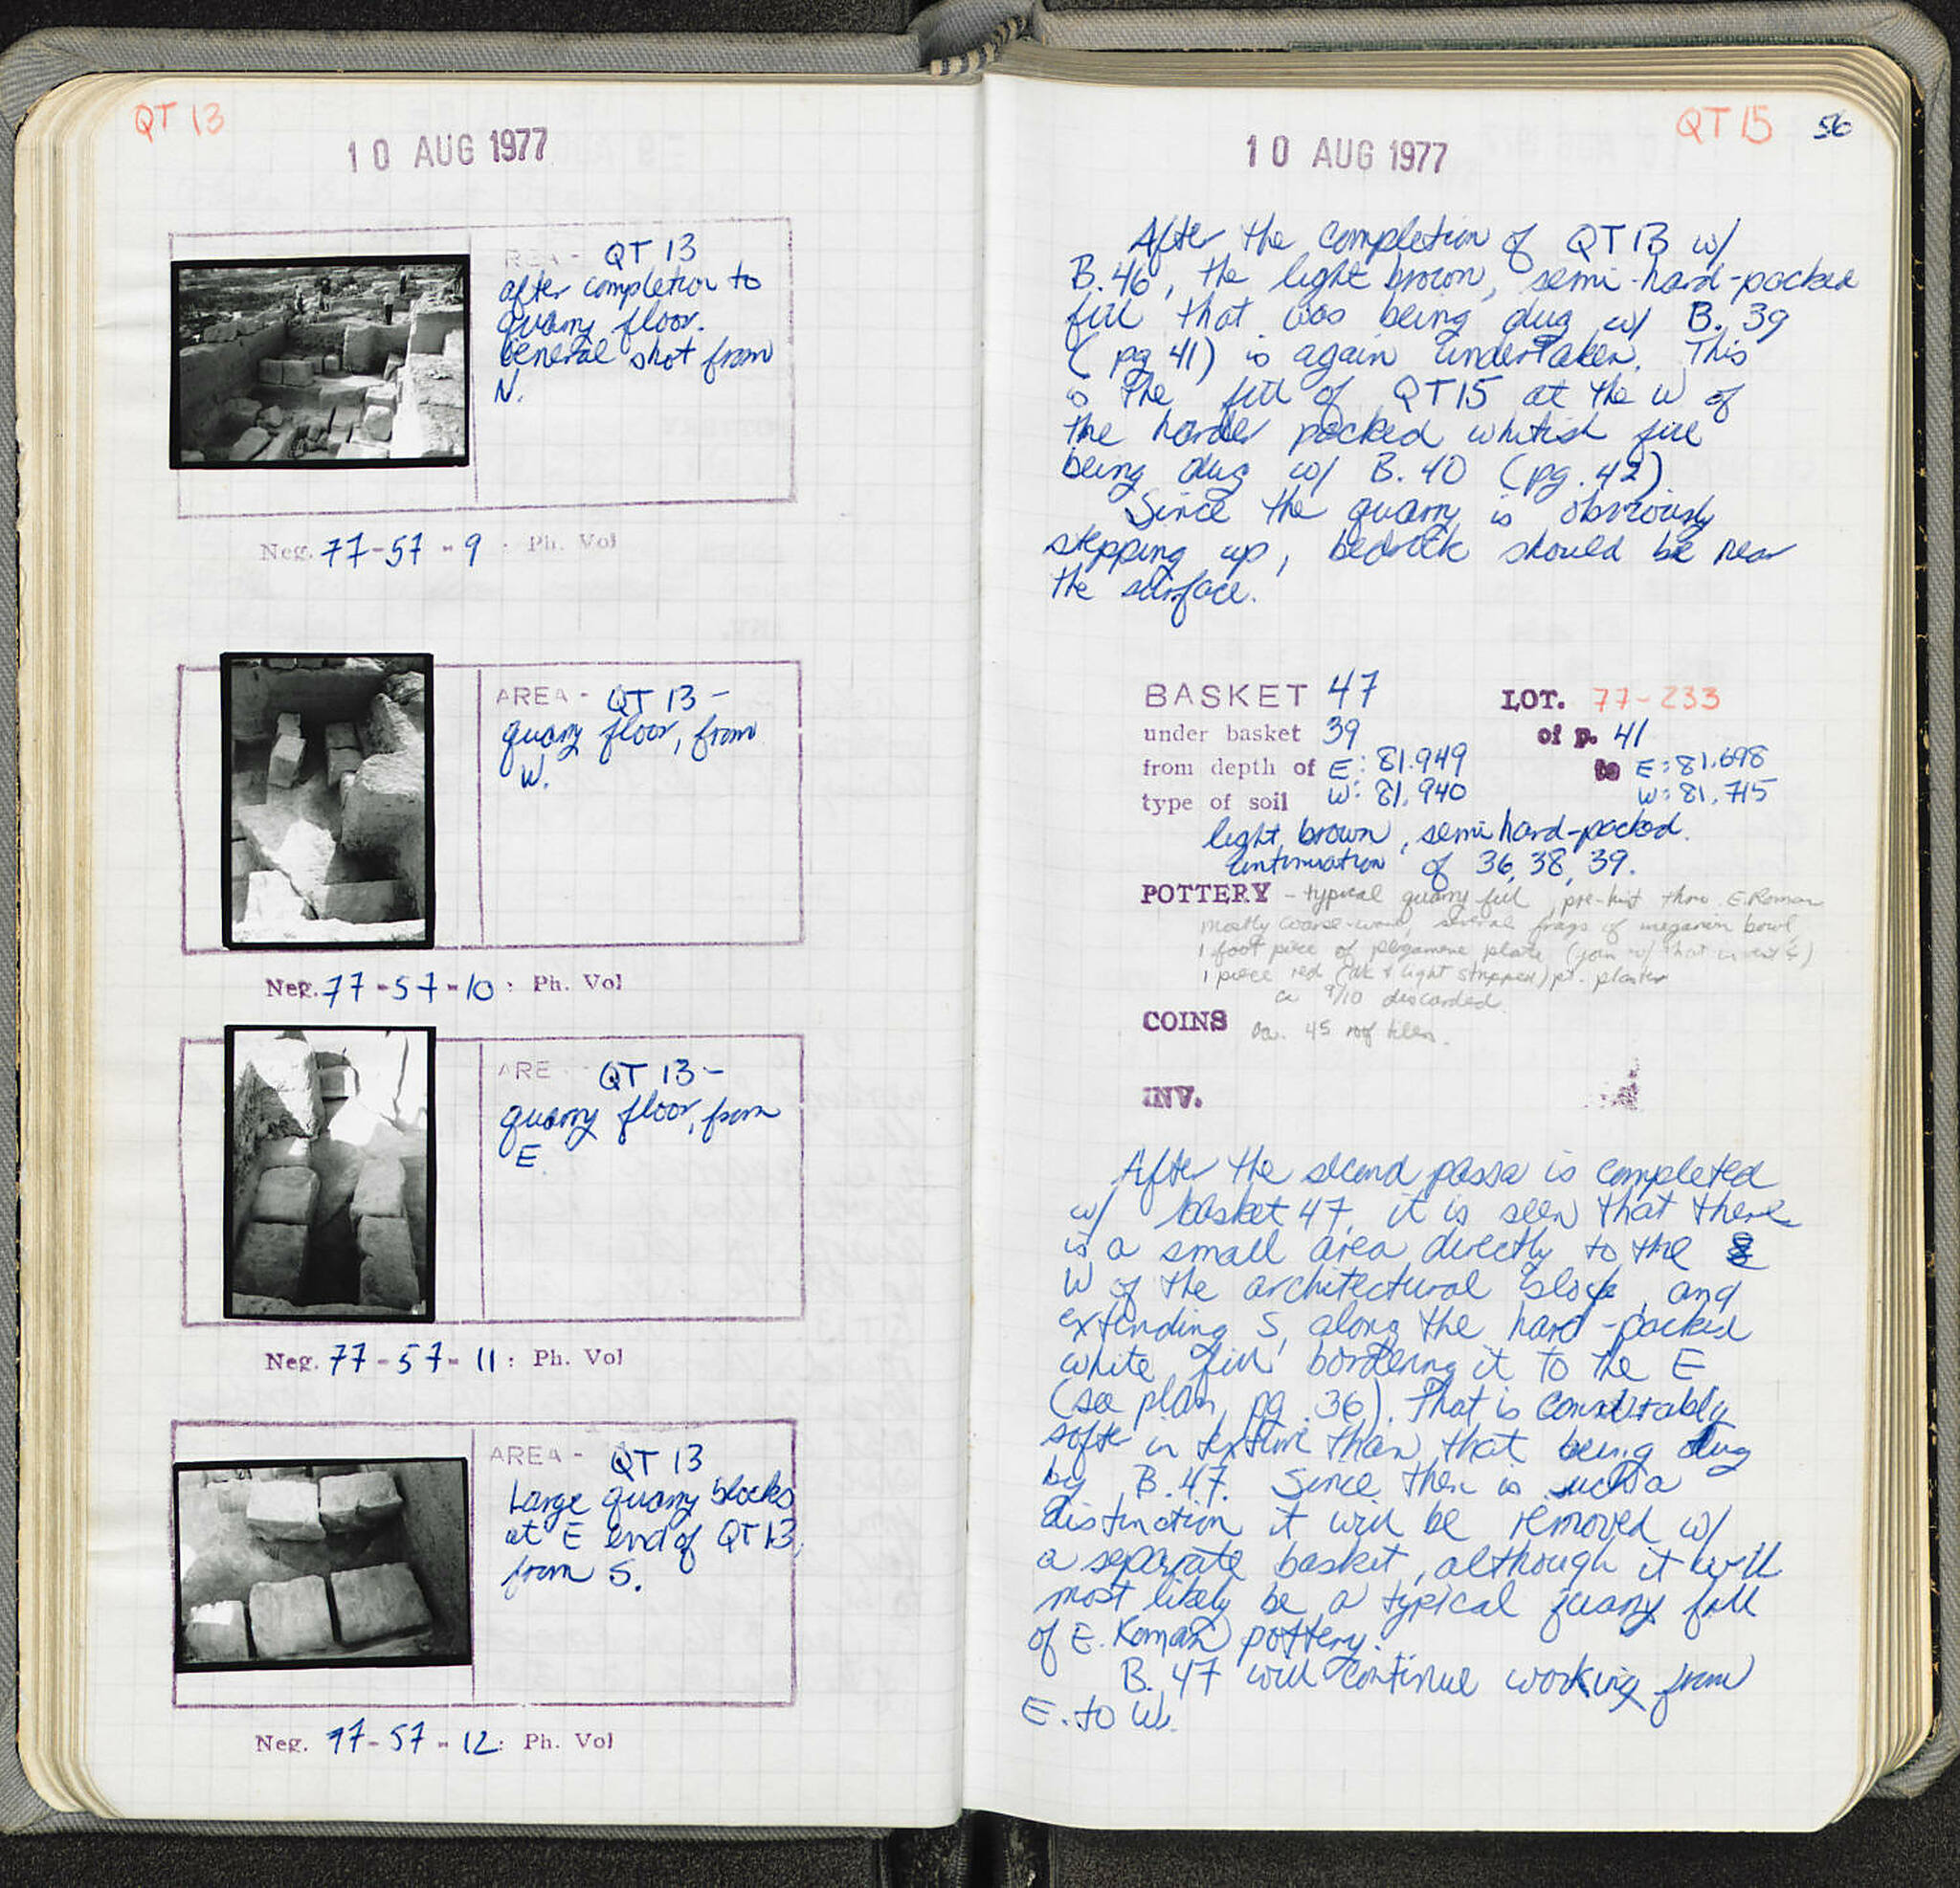 QT 13
10 AUG 1977
REA - QT 13
after completion to
quarry floor.
General shot from
N.
Neg. 77-57-9 : Ph. Vol
AREA - QT 13 -
quarry floor, from
W.
Neg. 77-57-10 : Ph. Vol
ARE QT 13 -
quarry floor, from
E.
Neg. 77-57-11 : Ph. Vol
AREA - QT 13
Large quarry blocks
at E end of QT 13,
from S.
Neg. 77-57-12 : Ph. Vol
QT 15 56
10 AUG 1977
After the completion of QT 13 w/
B.46, the light brown, semi-hard-packed
fill that was being dug w/ B. 39
(pg 41) is again undertaken. This
is the fill of QT15 at the W of
the harder packed whitish fill
being dug w/ B. 40 (pg. 42).
Since the quarry is obviously
stepping up, bedrock should be near
the surface.
BASKET 47 LOT. 77-233
under basket 39 of p. 41
from depth of E: 81.949 to E: 81.698
type of soil W: 81.940 W: 81.715
light brown, semi hard-packed.
continuation of 36, 38, 39.
POTTERY - typical quarry fill, pre-hist thru E.Roman
mostly coarse-ware, several frags of megarian bowl,
1 foot piece of pergamene plate (join w/ that
1 piece red (dk & light stripped) pt. plaster
ca 9/10 discarded.
COINS ca. 45 roof tiles.
INV.
After the second passa is completed
w/ basket 47, it is seen that there
is a small area directly to the
W of the architectural block, and
extending S, along the hard-packed
white fill bordering it to the E
(see plan, pg. 36). That is considerably
softer in texture than that being dug
by B.47. Since there is such a
distinction it will be removed w/
a separate basket, although it will
most likely be a typical quarry fill
of E. Roman pottery.
B. 47 will continue working from
E. to W.